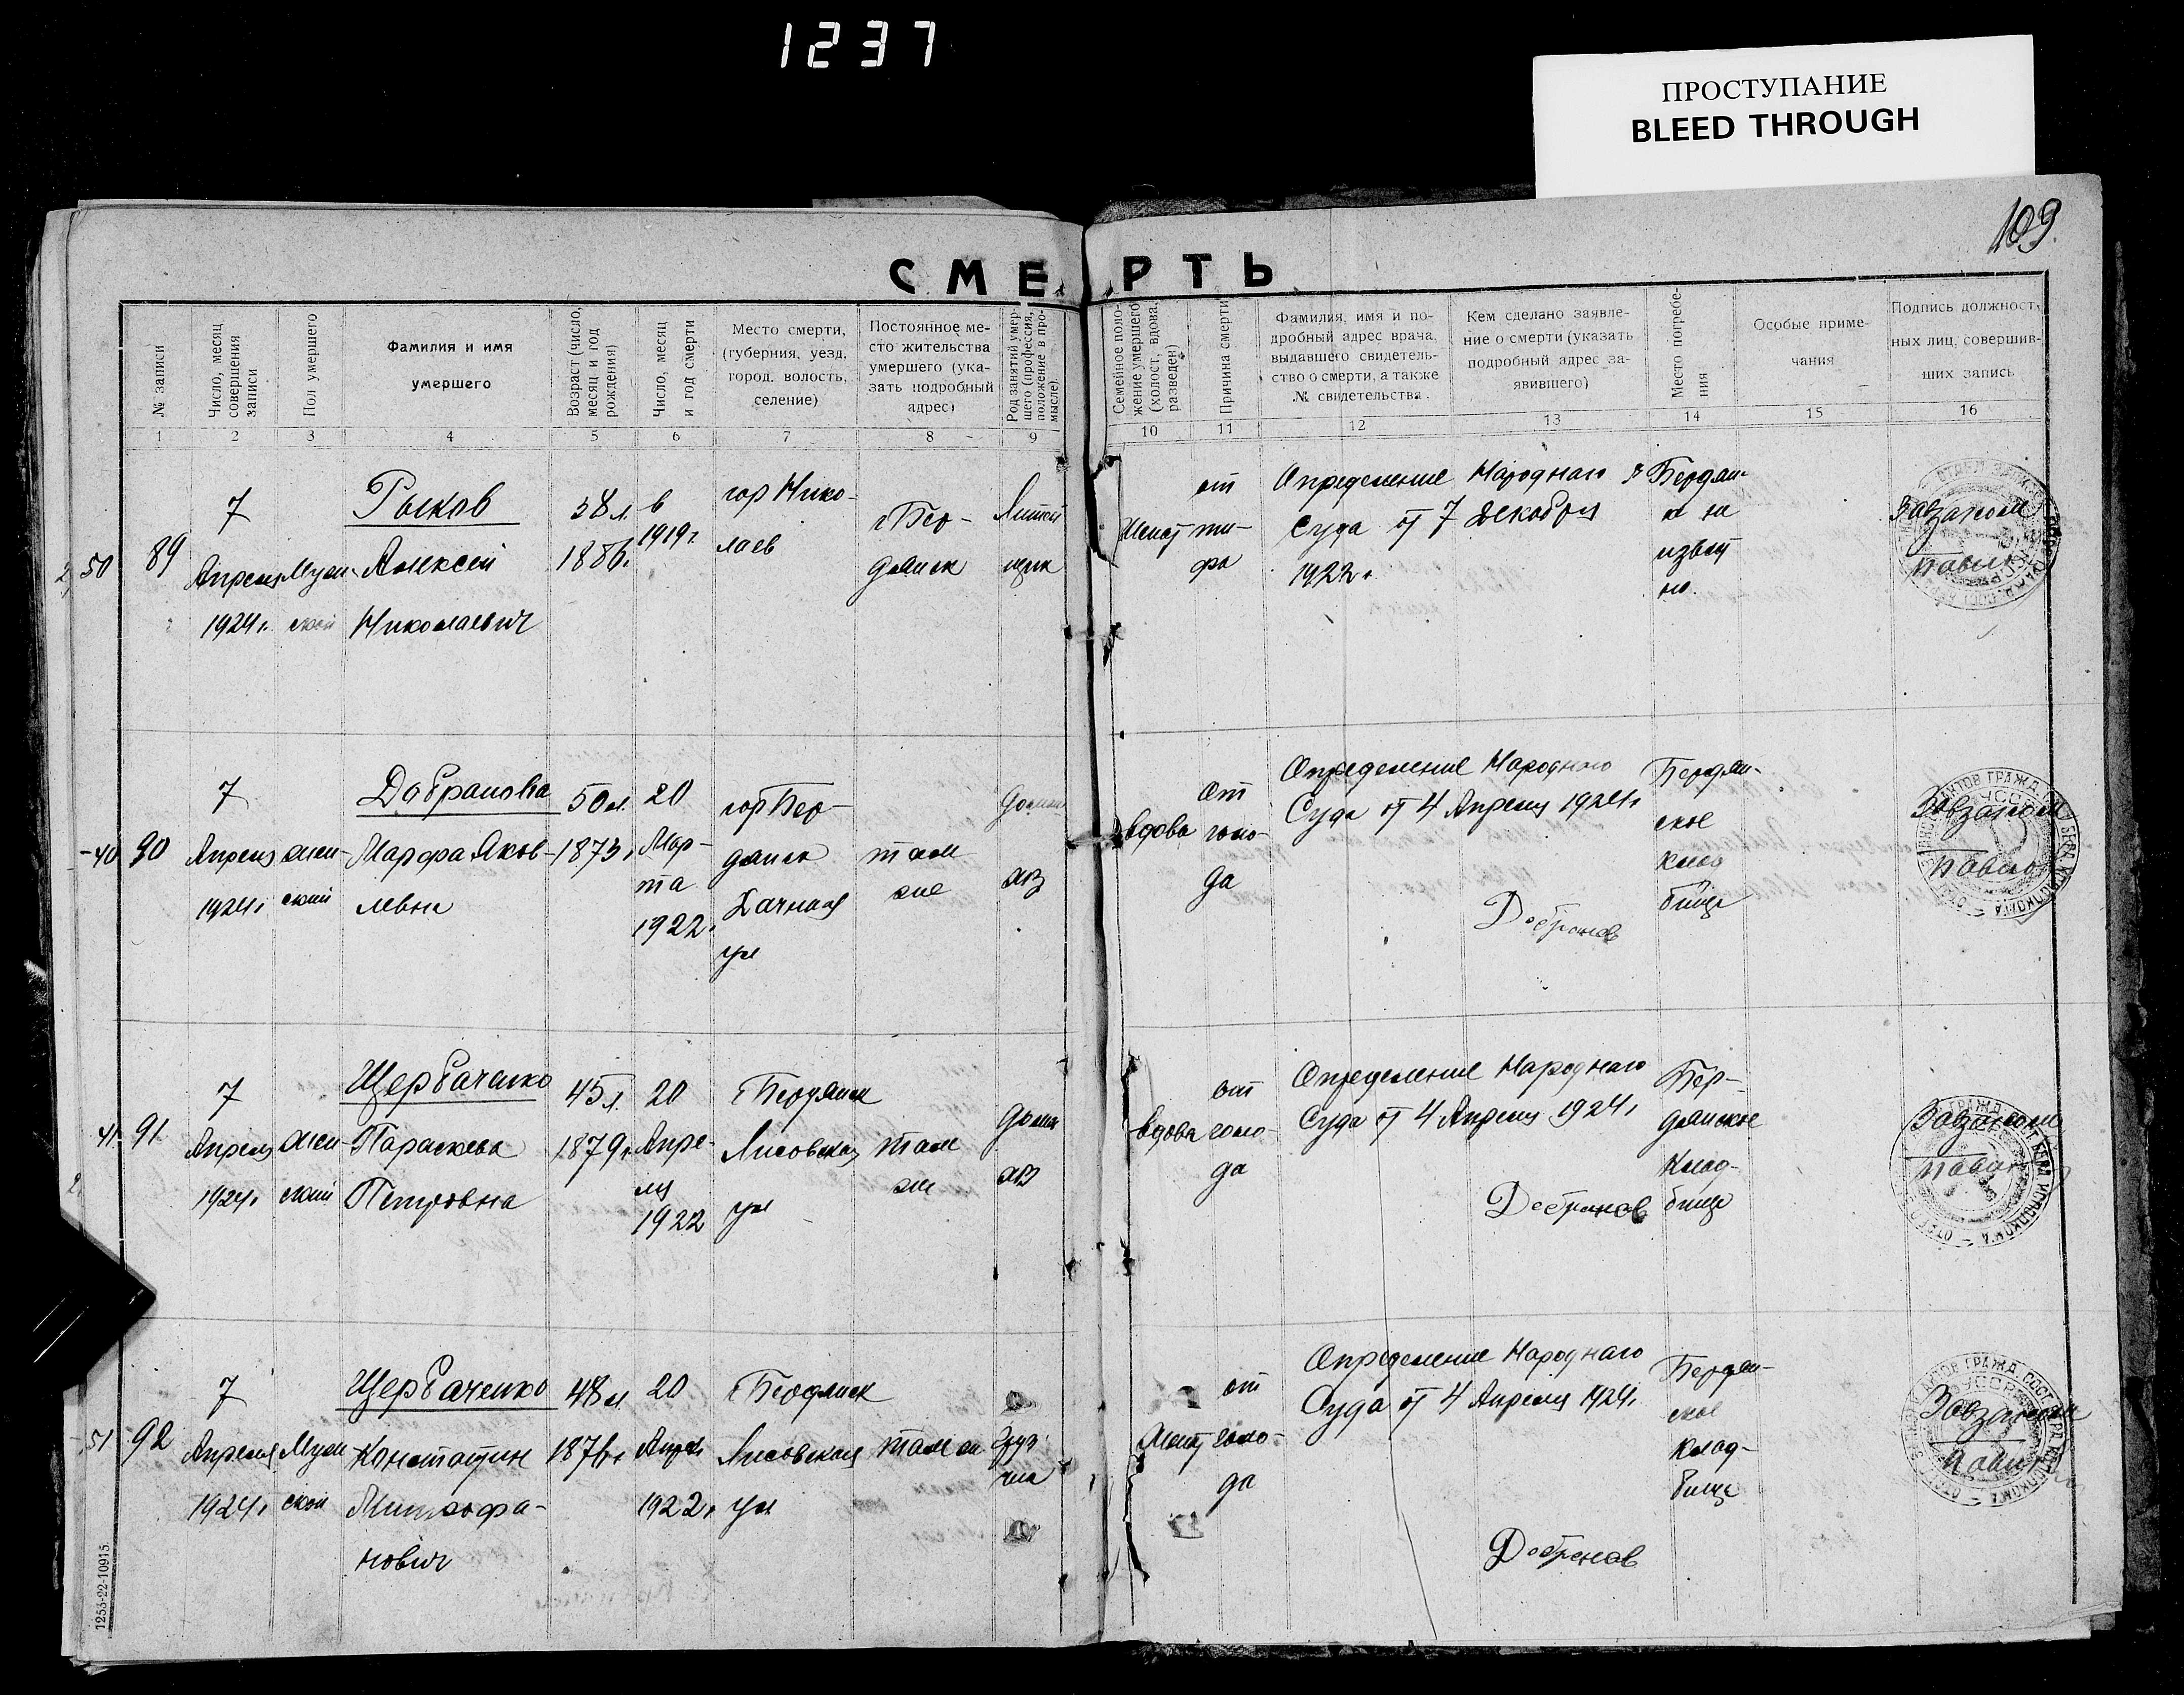 1237
ПРОСТУПАНИЕ
BLEED THROUGH
109.
СМЕРТЬ
№ записи
Число, месяц совершения записи
Пол умершего
Фамилия и имя
умершего
Возраст (число, месяц и год рождения)
Число, месяц и год смерти
Место смерти,
(губерния, уезд,
город, волость,
селение)
Постоянное ме-
сто жительства
умершего (ука-
зать подробный
адрес)
Род занятий умер-
шего (профессия,
положение в про-
мысле).
Семейное поло-
жение умершего
(холост, вдова,
разведен)
Причина смерти
Фамилия, имя и по-
дробный адрес врача,
выдавшего свидетель-
ство о смерти, а также
№ свидетельства.
Кем сделано заявле-
ние о смерти (указать
подробный адрес за-
явившего)
Место погребе-
ния
Особые приме-
чания
Подпись должност-
ных лиц, совершив-
ших запись
1 2 3 4 5 6 7 8 9 10 11 12 13 14 15 16
50
89
7
Апреля
1924 г.
Муж
ской
Рыков
Алексей
Николаевич
38 л.
1886 г.
в
1919 г.
гор Нико-
лаев
г Бер-
дянск
Литей
щик
Женат
от
ти-
фа
Определение Народнаго
Суда от 7 Декабря
1922 г.
Завзагсом
40
90
7
Апреля
1924 г.
жен-
ский
Добранова
Марфа Яков-
левна
50 л.
1873 г.
20
Мар-
та
1922 г.
гор Бер-
дянск
Дачная
ул
там
же
домаш
хоз
вдова
от
голо-
да
Определение Народнаго
Суда от 4 Апреля 1924 г.
Добранов
Бердян-
ское
клад
бище
Завзагсом
41
91
7
Апреля
1924 г.
жен-
ский
Щербаченко
Параскева
Петровна
45 л.
1879 г.
20
Апре-
ля
1922
г Бердянск
Лисовская
ул
там
же
домаш
хоз
вдова
от
голо-
да
Определение Народнаго
Суда от 4 Апреля 1924 г.
Добранов
Бер-
дянское
Клад-
бище
Завзагсом
51
92
7
Апреля
1924 г.
Муж
ской
Щербаченко
Констатин
Митрофа-
нович
48 л
1876 г.
20
Апреля
1922 г.
г Бердянск
Лисовская
ул
там же
Груз-
чик
Женат
от
голо-
да
Определение Народнаго
Суда от 4 Апреля 1924 г.
Добранов
Бердян-
ское
клад-
бище
Завзагсом
1253-22-10915.